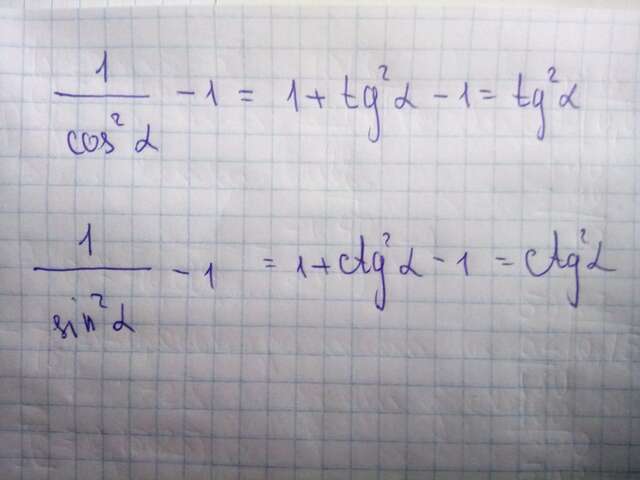 1/cos²α - 1 = 1 + tg²α - 1 = tg²α
1/sin²α - 1 = 1 + ctg²α - 1 = ctg²α